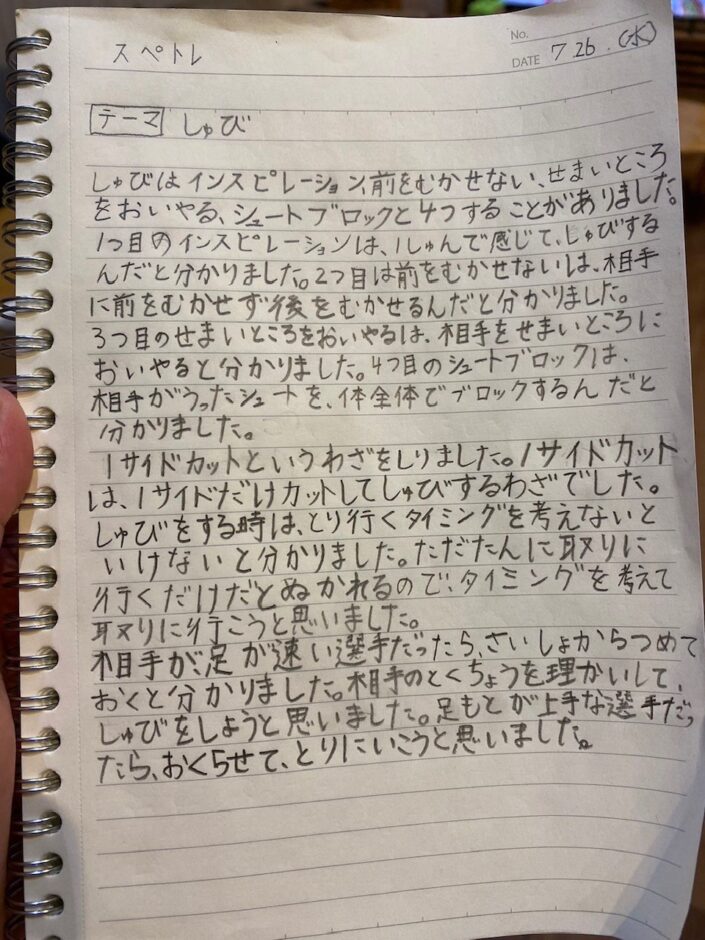 スペトレ
No.
DATE 7.26.(水)
テーマ しゅび
しゅびはインスピレーション前をむかせない、せまいところ
をおいやる、シュートブロックと4つすることがありました。
1つ目のインスピレーションは、1しゅんで感じて、しゅびする
んだと分かりました。2つ目は前をむかせないは、相手
に前をむかせず後をむかせるんだと分かりました。
3つ目のせまいところをおいやるは、相手をせまいところに
おいやると分かりました。4つ目のシュートブロックは、
相手がうったシュートを、体全体でブロックするんだと
分かりました。
1サイドカットというわざをしりました。1サイドカット
は、1サイドだけカットしてしゅびするわざでした。
しゅびをする時は、とり行くタイミングを考えないと
いけないと分かりました。ただたんに取りに
行くだけだとぬかれるので、タイミングを考えて
取りに行こうと思いました。
相手が足が速い選手だったら、さいしょからつめて
おくと分かりました。相手のとくちょうを理かいして、
しゅびをしようと思いました。足もとが上手な選手だっ
たら、おくらせて、とりにいこうと思いました。